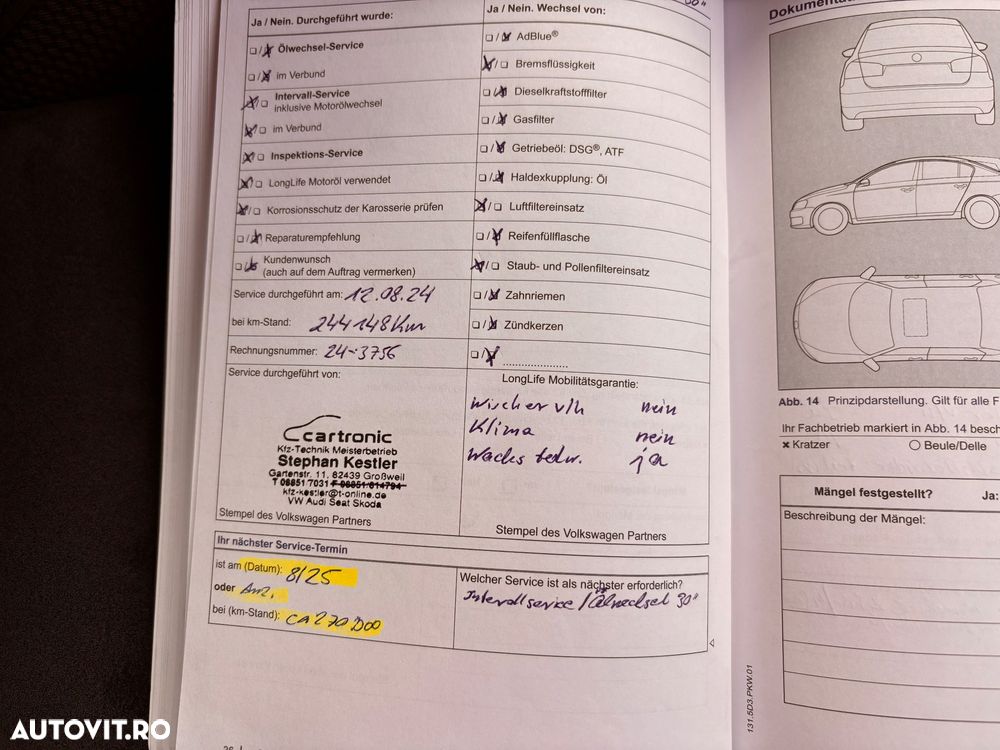 Ja / Nein. Durchgeführt wurde:
☐/☒ Ölwechsel-Service
☐/☒ im Verbund
☒/☐ Intervall-Service
inklusive Motorölwechsel
☒/☐ im Verbund
☒/☐ Inspektions-Service
☒/☐ LongLife Motoröl verwendet
☒/☐ Korrosionsschutz der Karosserie prüfen
☐/☒ Reparaturempfehlung
☐/☒ Kundenwunsch
(auch auf dem Auftrag vermerken)
Service durchgeführt am: 12.08.24
bei km-Stand: 244148 Km
Rechnungsnummer: 24-3756
Service durchgeführt von:
cartronic
Kfz-Technik Meisterbetrieb
Stephan Kestler
Gartenstr. 11, 82439 Großweil
T 08851 7031 F 08851/614794
kfz-kestler@t-online.de
VW Audi Seat Skoda
Stempel des Volkswagen Partners
Ja / Nein. Wechsel von:
☐/☒ AdBlue®
☒/☐ Bremsflüssigkeit
☐/☒ Dieselkraftstofffilter
☐/☒ Gasfilter
☐/☒ Getriebeöl: DSG®, ATF
☐/☒ Haldexkupplung: Öl
☒/☐ Luftfiltereinsatz
☐/☒ Reifenfüllflasche
☒/☐ Staub- und Pollenfiltereinsatz
☐/☒ Zahnriemen
☐/☒ Zündkerzen
☐/☒ ......................
LongLife Mobilitätsgarantie:
Wischer v/h nein
Klima nein
Wachs bedw. ja
Stempel des Volkswagen Partners
Ihr nächster Service-Termin
ist am (Datum): 8/25
oder
bei (km-Stand): ca 270.000
Welcher Service ist als nächster erforderlich?
Intervallservice / Ölwechsel 30"
131.5D3.PKW.01
Dokumentat
Abb. 14 Prinzipdarstellung. Gilt für alle F
Ihr Fachbetrieb markiert in Abb. 14 besch
× Kratzer ○ Beule/Delle
Mängel festgestellt? Ja:
Beschreibung der Mängel:
AUTOVIT.RO